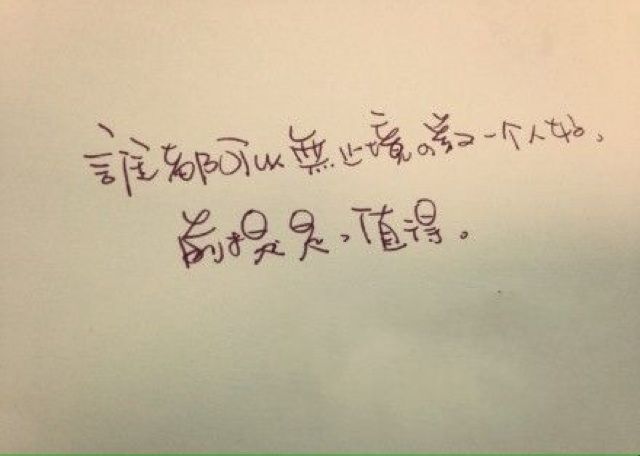 誰都可以無止境の對一个人好，
前提是，值得。